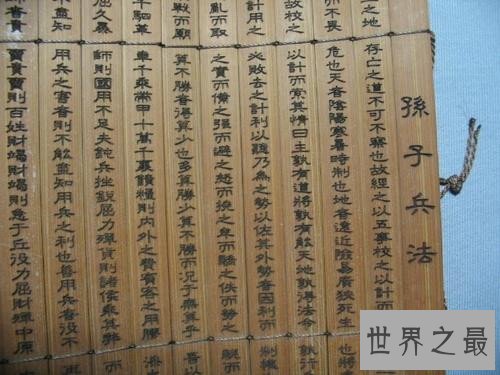 孫子兵法
之地存亡之道不可不察也故經之以五事校之以計而
而不畏危也天者陰陽寒暑時制也地者遠近險易廣狹死生也將
故校之以計而索其情曰主孰有道將孰有能天地孰得法令執行
計用之必敗去之計利以聽乃為之勢以佐其外勢者因利而制權
亂而取之實而備之強而避之怒而撓之卑而驕之佚而勞之親而
戰而廟算不勝者得算少也多算勝少算不勝而況于無算乎吾以
千駟革車千乘帶甲十萬千里饋糧則內外之費賓客之用膠漆
屈久暴師則國用不足夫鈍兵挫銳屈力殫貨則諸侯乘其弊而
不盡知用兵之害者則不能盡知用兵之利也善用兵者役不
師者貴賣貴賣則百姓財竭財竭則急于丘役力屈財殫中原
世界之最